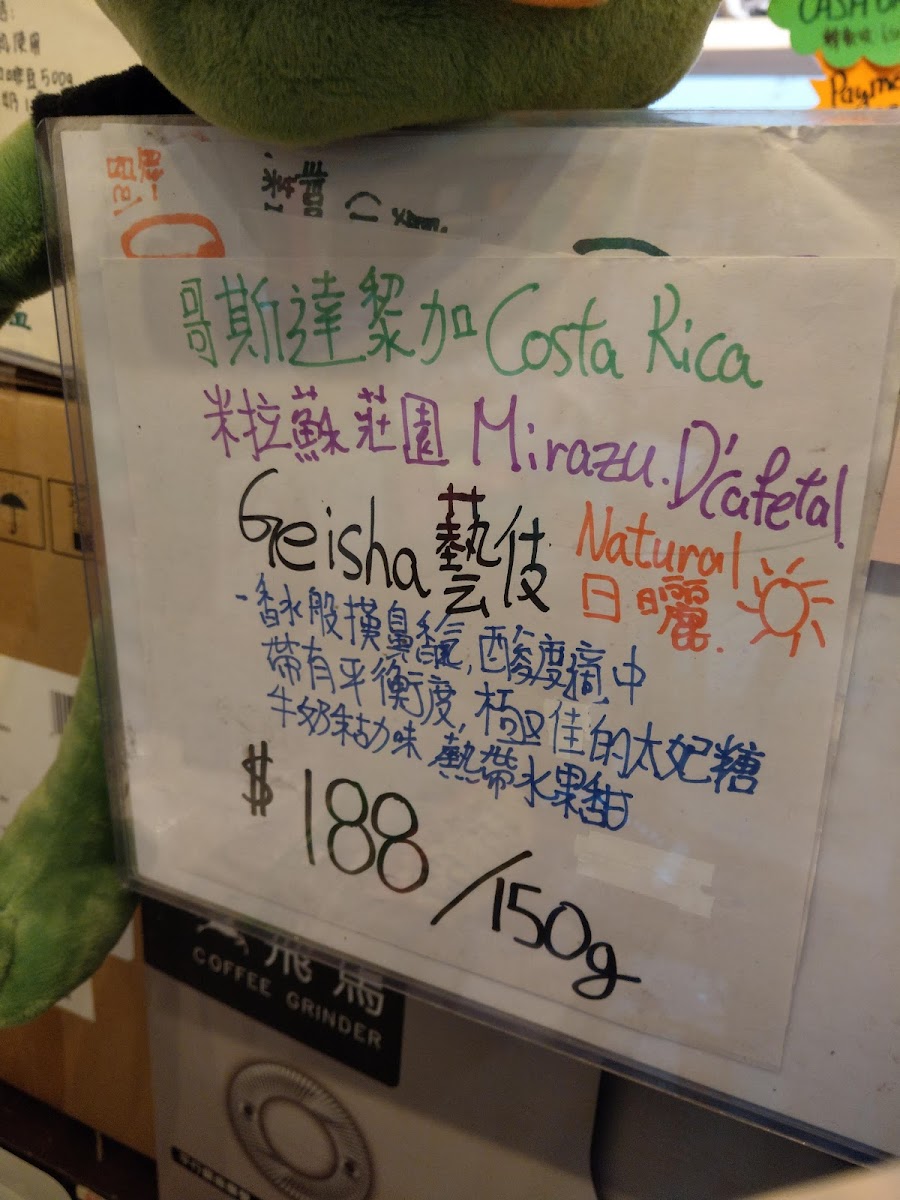 使用
豆500g
CASH O
Payme
哥斯達黎加 Costa Rica
米拉蘇莊園 Mirazu. D'cafetal
Geisha 藝伎 Natural
日曬
- 香水般撲鼻香氣, 酸度適中
帶有平衡度, 極佳的太妃糖
牛奶朱古力味 熱帶水果甜
$188/150g
飛馬
COFFEE GRINDER